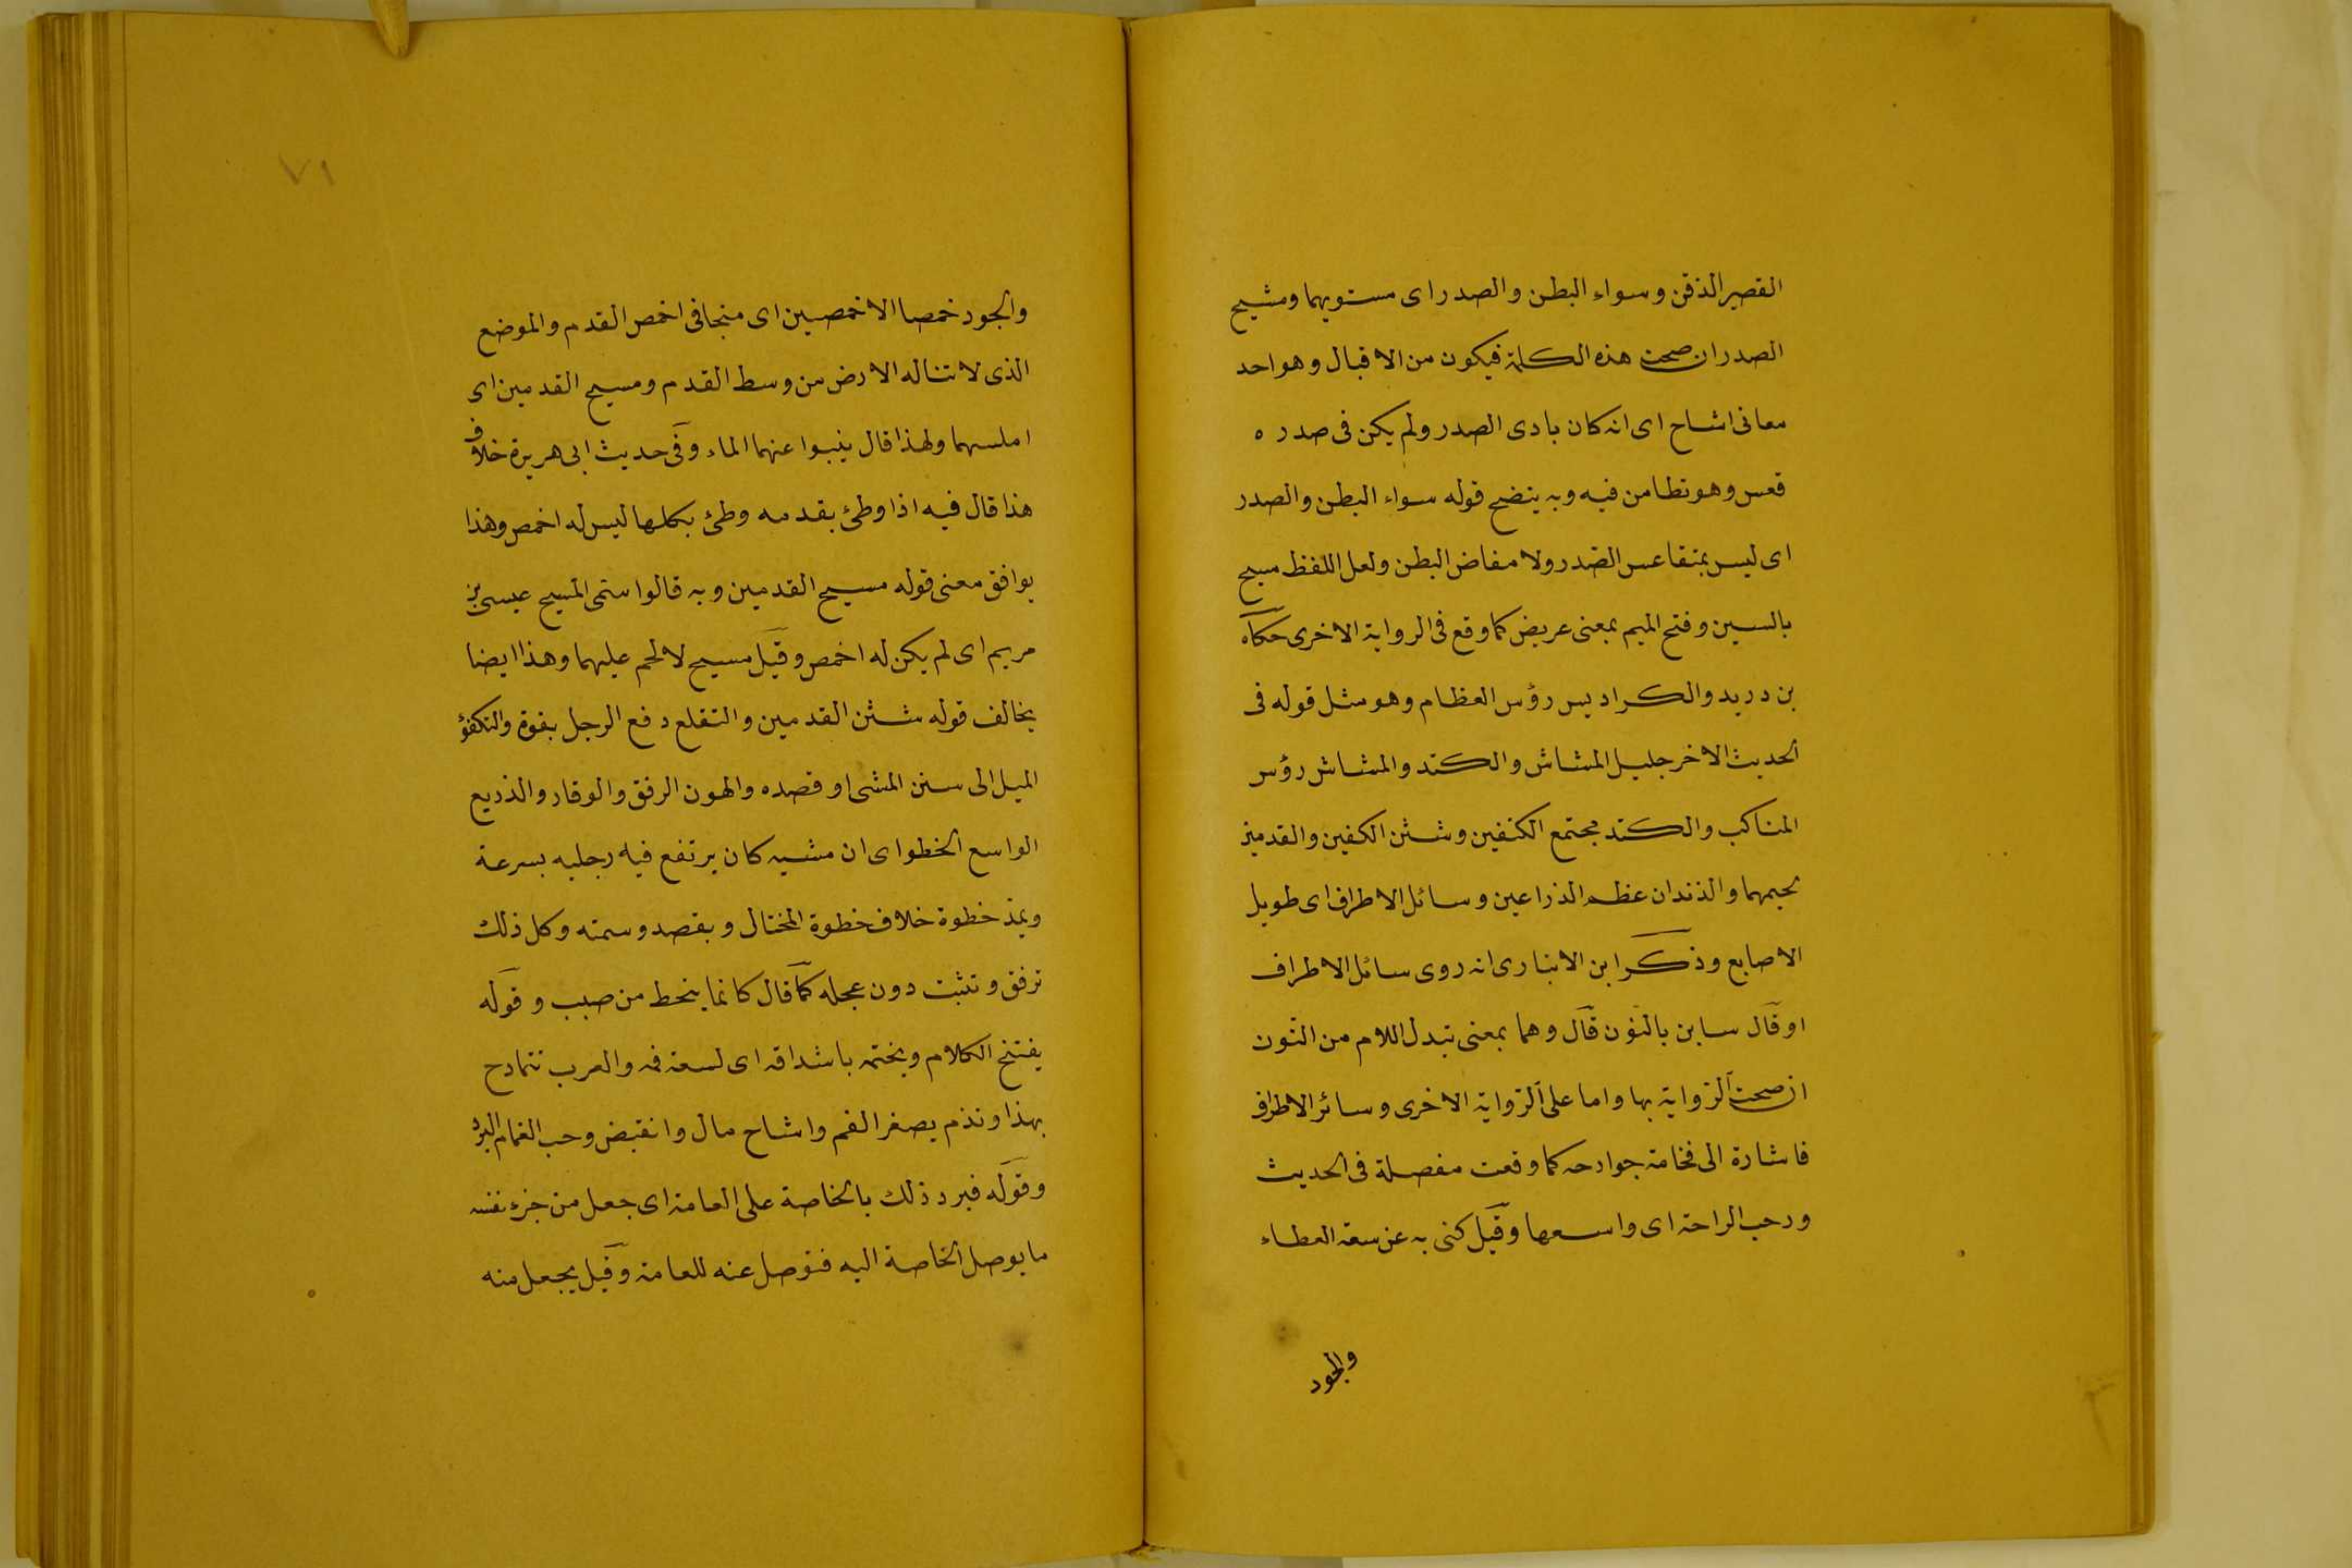 القصير الذقن وسواء البطن والصدر اى مستويهما ومشيح
الصدر ان صحت هذه الكلمة فيكون من الاقبال وهو احد
معانى اشاح اى انه كان بادى الصدر ولم يكن فى صدره
قعس وهو تطامن فيه وبه يتضح قوله سواء البطن والصدر
اى ليس بمتقاعس الصدر ولا مفاض البطن ولعل اللفظ مسيح
بالسين وفتح الميم بمعنى عريض كما وقع فى الرواية الاخرى حكاه
بن دريد والكراديس رؤس العظام وهو مثل قوله فى
الحديث الاخر جليل المشاش والكتد والمشاش رؤس
المناكب والكتد مجتمع الكتفين وشثن الكفين والقدمين
لحيمهما والزندان عظم الذراعين وسائل الاطراف اى طويل
الاصابع وذكر ابن الانبارى انه روى سائل الاطراف
او قال ساين بالنون قال وهما بمعنى تبدل اللام من النون
ان صحت الرواية بها واما على الرواية الاخرى وسائر الاطراف
فاشارة الى فخامة جوارحه كما وقعت مفصلة فى الحديث
ورحب الراحة اى واسعها وقيل كنى به عن سعة العطاء
والجود
٧١
والجود خمصا الاخمصين اى متجافى اخمص القدم والموضع
الذى لا تناله الارض من وسط القدم ومسيح القدمين اى
املسهما ولهذا قال ينبوا عنهما الماء وفى حديث ابى هريرة خلاف
هذا قال فيه اذا وطئ بقدمه وطئ بكلها ليس له اخمص وهذا
يوافق معنى قوله مسيح القدمين وبه قالوا سمى المسيح عيسى بن
مريم اى لم يكن له اخمص وقيل مسيح لا لحم عليهما وهذا ايضا
يخالف قوله شثن القدمين والتقلع دفع الرجل بقوة والتكفؤ
الميل الى سنن المشى او قصده والهون الرفق والوقار والذريع
الواسع الخطو اى ان مشيه كان يرتفع فيه رجليه بسرعة
ويمد خطوة خلاف خطوة المختال وبقصد وسمته وكل ذلك
ترفق وتثبت دون عجله كما قال كانما ينحط من صبب وقوله
يفتتح الكلام ويختمه باشداقه اى لسعة فمه والعرب تتمادح
بهذا وتذم بصغر الفم واشاح مال وانقبض وحب الغمام البرد
وقوله فيرد ذلك بالخاصة على العامة اى جعل من جزء نفسه
ما يوصل الخاصة اليه فتوصل عنه للعامة وقيل يجعل منه